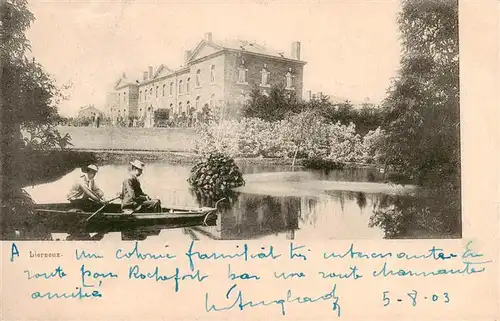 Lierneux
A un colonie familial très interessante En
route pour Rochefort par une route charmante
amitiés
5-8-03